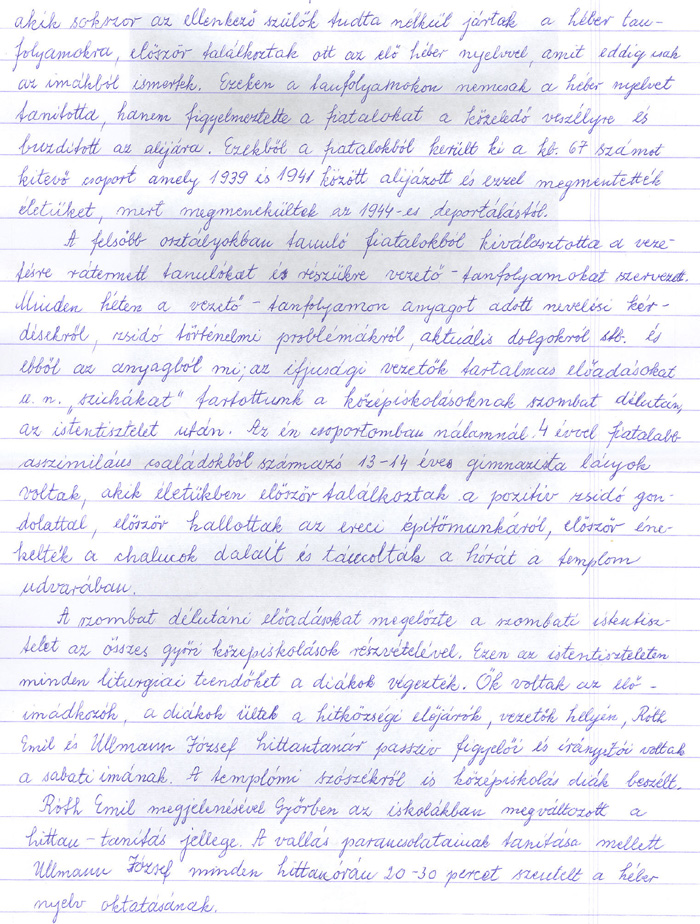 akik sokszor az ellenkező szülők tudta nélkül jártak a héber tan-
folyamokra, először találkoztak ott az élő héber nyelvvel, amit eddig csak
az imákból ismertek. Ezeken a tanfolyamokon nemcsak a héber nyelvet
tanította, hanem figyelmeztette a fiatalokat a közeledő veszélyre és
buzdított az alijára. Ezekből a fiatalokból került ki a kb. 67 számot
kitevő csoport amely 1939 és 1941 között alijázott és ezzel megmentették
életüket, mert megmenekültek az 1944-es deportálástól.
A felsőbb osztályokban tanuló fiatalokból kiválasztotta a veze-
tésre rátermett tanulókat és részükre vezető-tanfolyamokat szervezett.
Minden héten a vezető-tanfolyamon anyagot adott nevelési kér-
désekről, zsidó történelmi problémákról, aktuális dolgokról stb. és
ebből az anyagból mi; az ifjusági vezetők tartalmas előadásokat
u.n. „szichákat" tartottunk a középiskolásoknak szombat délután,
az istentisztelet után. Az én csoportomban nálamnál 4 évvel fiatalabb
asszimiláns családokból származó 13-14 éves gimnazista lányok
voltak, akik életükben először találkoztak a pozitiv zsidó gon-
dolattal, először hallottak az ereci építőmunkáról, először éne-
kelték a chalucok dalait és táncolták a hórát a templom
udvarában.
A szombat délutáni előadásokat megelőzte a szombati istentisz-
telet az összes győri középiskolások részvételével. Ezen az istentiszteleten
minden liturgiai teendőket a diákok végezték. Ők voltak az elő-
imádkozók, a diákok ültek a hitközségi elöjárók, vezetők helyén, Róth
Emil és Ullmann József hittantanár passzív figyelői és irányítói voltak
a sabati imának. A templomi szószékről is középiskolás diák beszélt.
Róth Emil megjelenésével Győrben az iskolákban megváltozott a
hittan-tanítás jellege. A vallás parancsolatainak tanítása mellett
Ullmann József minden hittanórán 20-30 percet szentelt a héber
nyelv oktatásának.